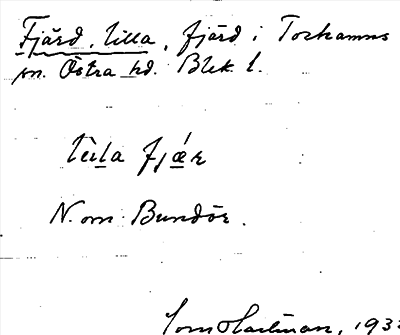 Fjärd, Lilla, fjärd i Torhamns
sn. Östra hd. Blek. l.
lìla fjǽr
N. om Bundör.
Torn Hartman, 193